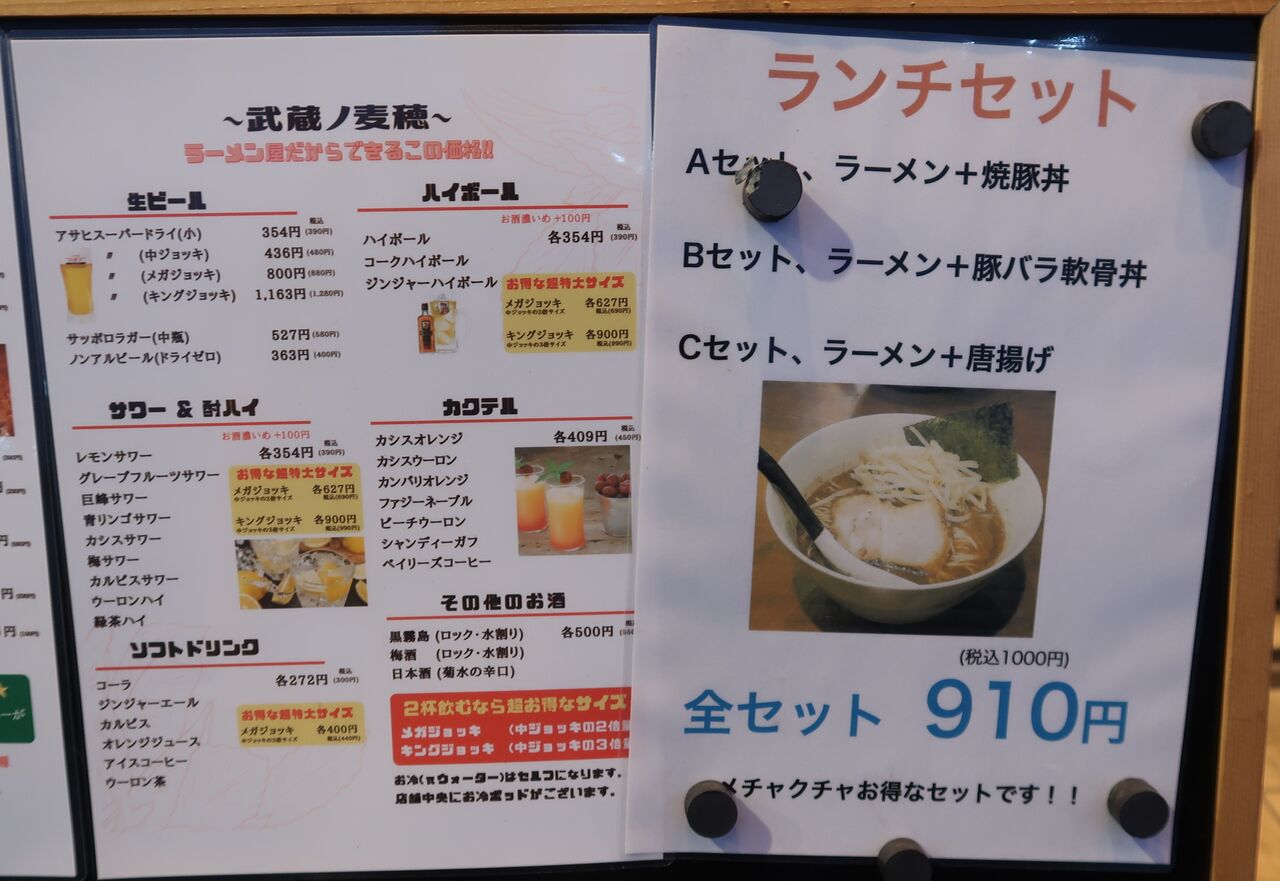 ~武蔵ノ麦穂~
ラーメン屋だからできるこの価格!!
生ビール
税込
アサヒスーパードライ(小) 354円(390円)
〃 (中ジョッキ) 436円(480円)
〃 (メガジョッキ) 800円(880円)
〃 (キングジョッキ) 1,163円(1,280円)
サッポロラガー(中瓶) 527円(580円)
ノンアルビール(ドライゼロ) 363円(400円)
ハイボール
お酒濃いめ+100円
税込
ハイボール 各354円(390円)
コークハイボール
ジンジャーハイボール
お得な超特大サイズ
メガジョッキ 各627円
中ジョッキの2倍サイズ 税込(690円)
キングジョッキ 各900円
中ジョッキの3倍サイズ 税込(990円)
サワー & 酎ハイ
お酒濃いめ+100円
税込
レモンサワー 各354円(390円)
グレープフルーツサワー
巨峰サワー
青リンゴサワー
カシスサワー
梅サワー
カルピスサワー
ウーロンハイ
緑茶ハイ
お得な超特大サイズ
メガジョッキ 各627円
中ジョッキの2倍サイズ 税込(690円)
キングジョッキ 各900円
中ジョッキの3倍サイズ 税込(990円)
カクテル
税込
カシスオレンジ 各409円(450円)
カシスウーロン
カンパリオレンジ
ファジーネーブル
ピーチウーロン
シャンディーガフ
ベイリーズコーヒー
ソフトドリンク
税込
コーラ 各272円(300円)
ジンジャーエール
カルピス
オレンジジュース
アイスコーヒー
ウーロン茶
お得な超特大サイズ
メガジョッキ 各400円
税込(440円)
その他のお酒
税込
黒霧島 (ロック・水割り) 各500円
梅酒 (ロック・水割り)
日本酒 (菊水の辛口)
2杯飲むなら超お得なサイズ
メガジョッキ (中ジョッキの2倍量
キングジョッキ (中ジョッキの3倍量
お冷(πウォーター)はセルフになります。
店舗中央にお冷ポッドがございます。
ランチセット
Aセット、ラーメン+焼豚丼
Bセット、ラーメン+豚バラ軟骨丼
Cセット、ラーメン+唐揚げ
(税込1000円)
全セット 910円
メチャクチャお得なセットです!!